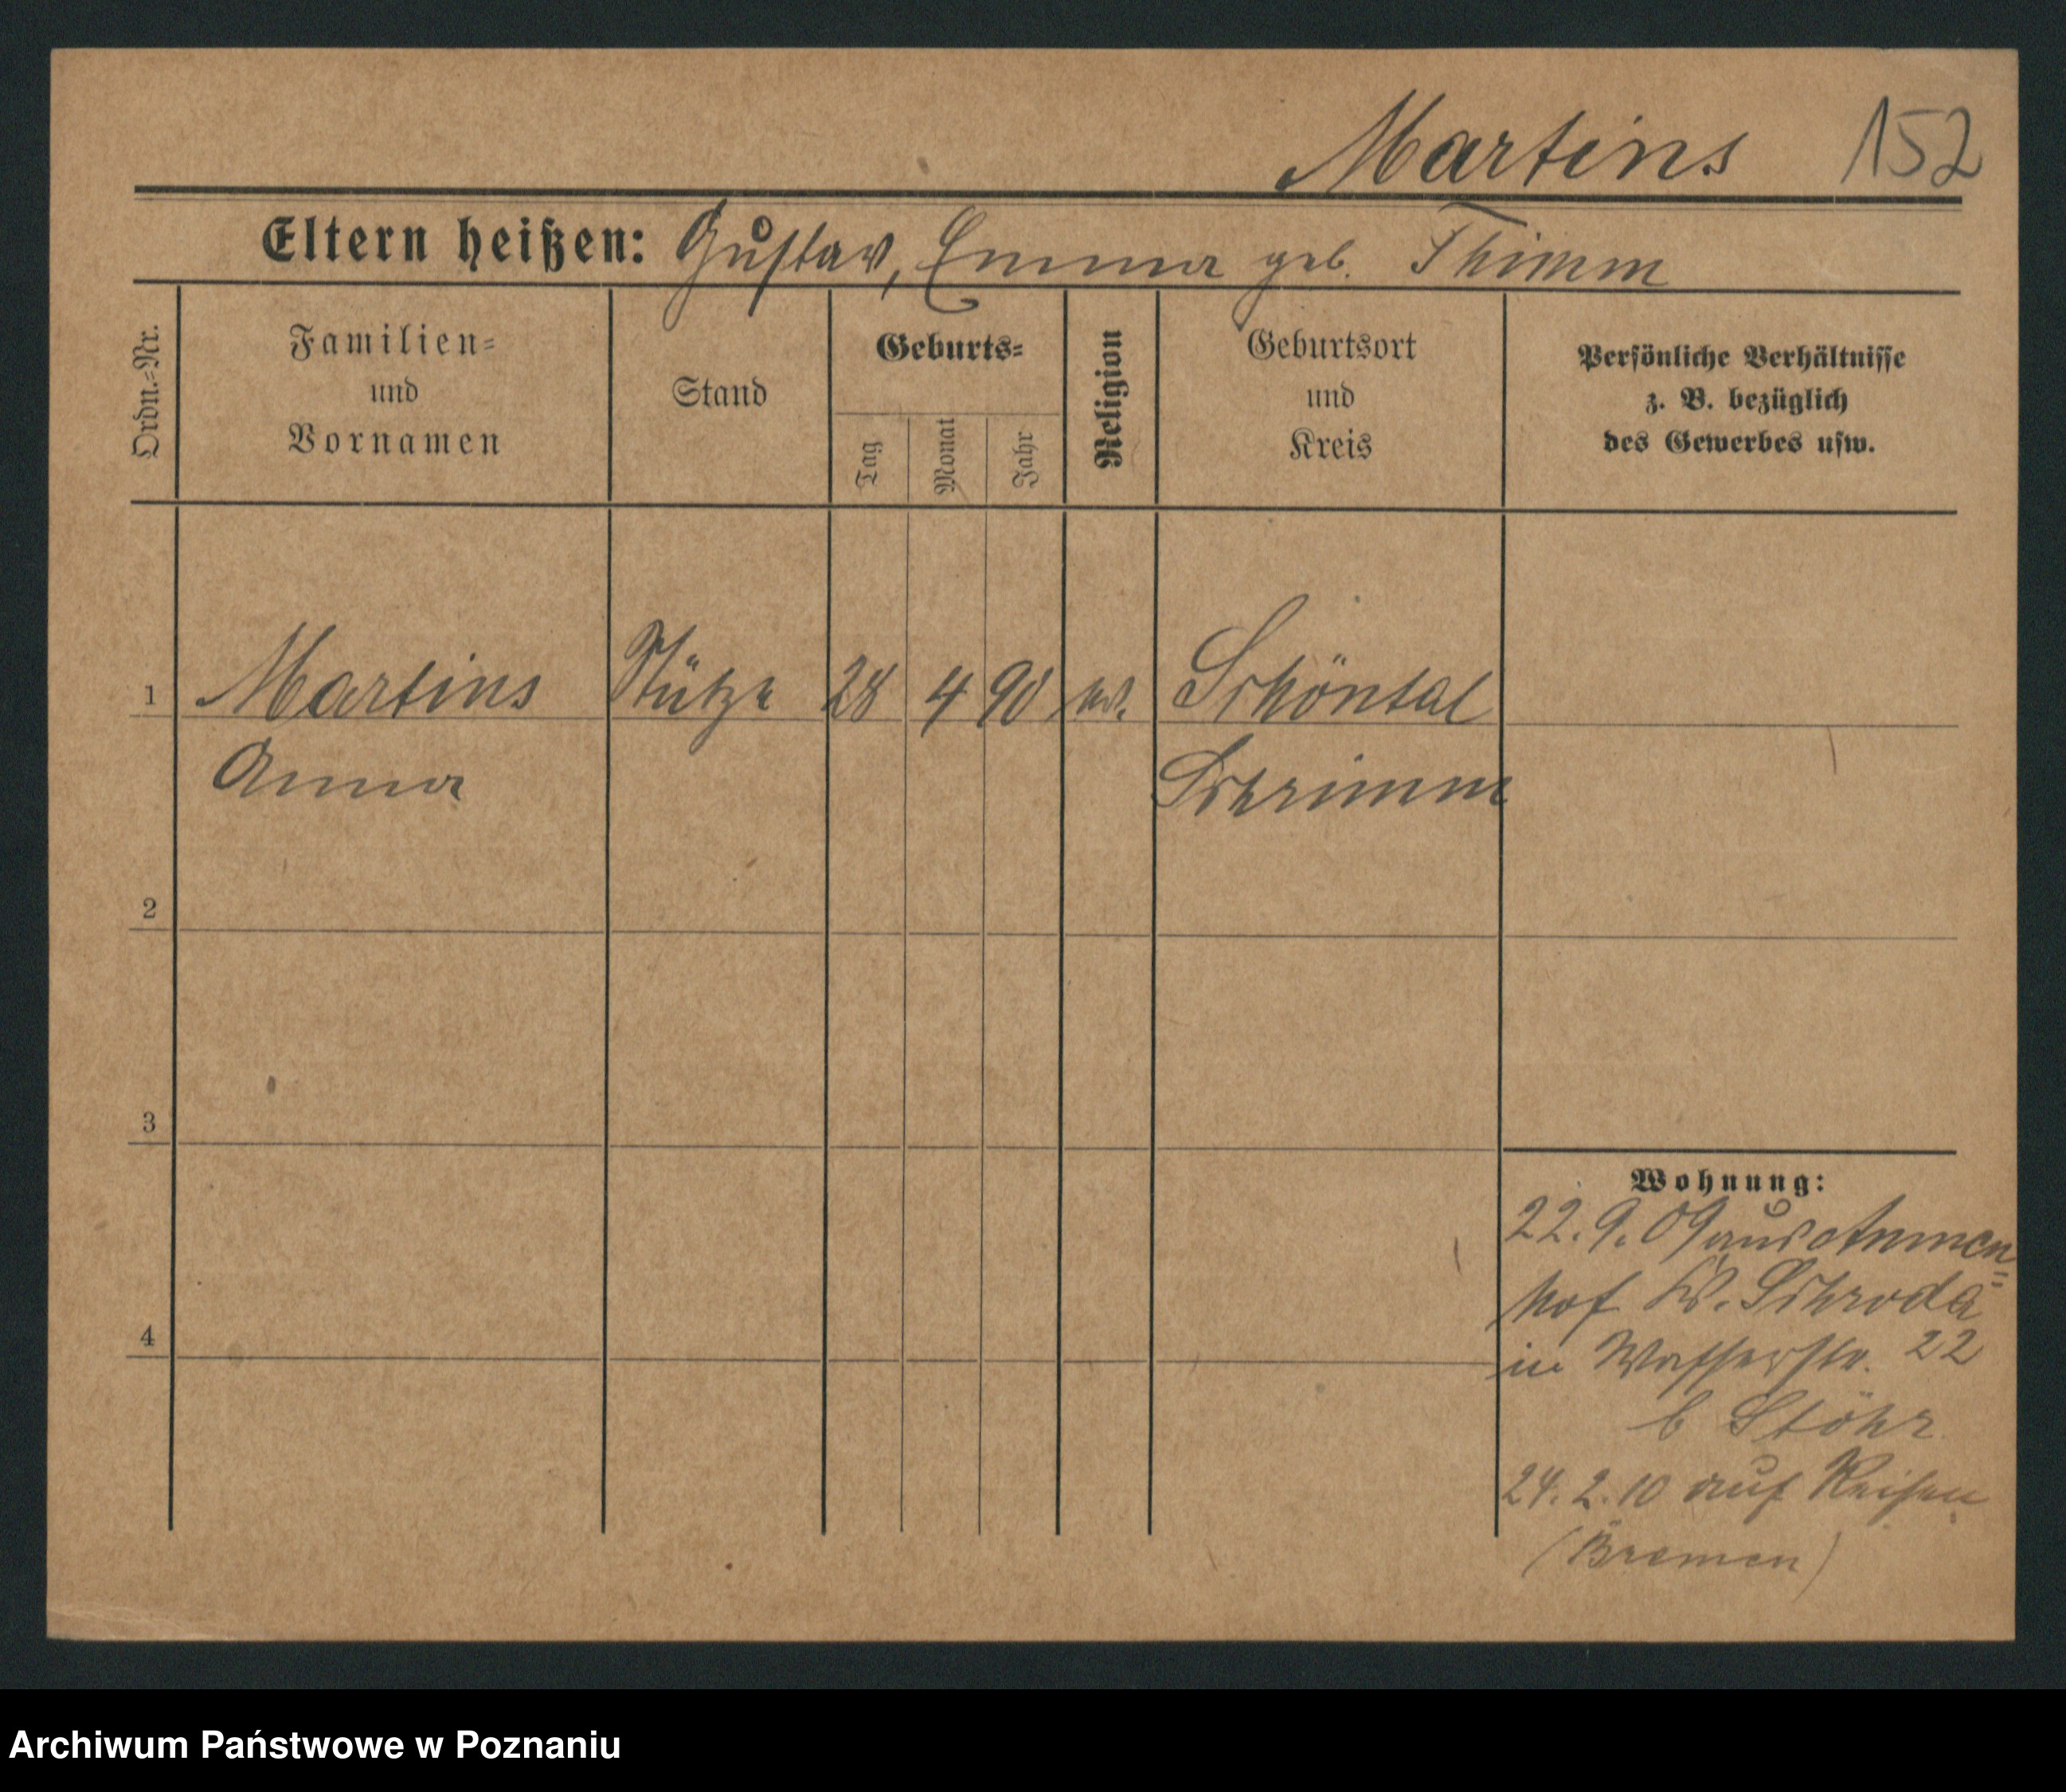 Martins 152
Eltern heißen: Gustav, Emma geb. Thimm
Ordn.-Nr.
Familien-
und
Vornamen
Stand
Geburts-
Tag
Monat
Jahr
Religion
Geburtsort
und
Kreis
Persönliche Verhältnisse
z. B. bezüglich
des Gewerbes usw.
1 Martins Stütze 28 4 90 ev. Schöntal
Anna Schrimm
2
3
4
Wohnung:
22.9.09 aus Annen-
hof Kr. Schroda
in Wasserstr. 22
b Stöhr
24.2.10 auf Reisen
(Bremen)
Archiwum Państwowe w Poznaniu